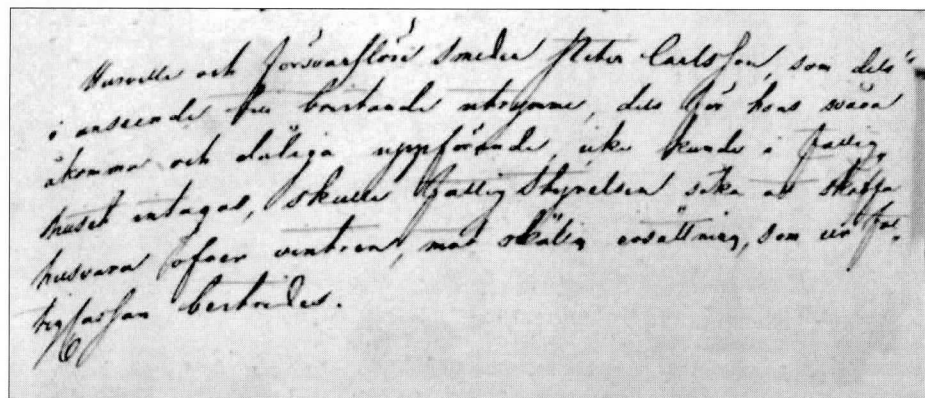 Husville och försvarslöse smeden Peter Carlsson, som dels
i anseende till bristande utrymme, dels för hans svåra
åkomma och dåliga uppförande, icke kunde i fattig-
huset intagas, skulle fattigstyrelsen söka att skaffa
husvara öfver vintren, mot skälig ersättning, som ur fat-
tigkassan bestrides.